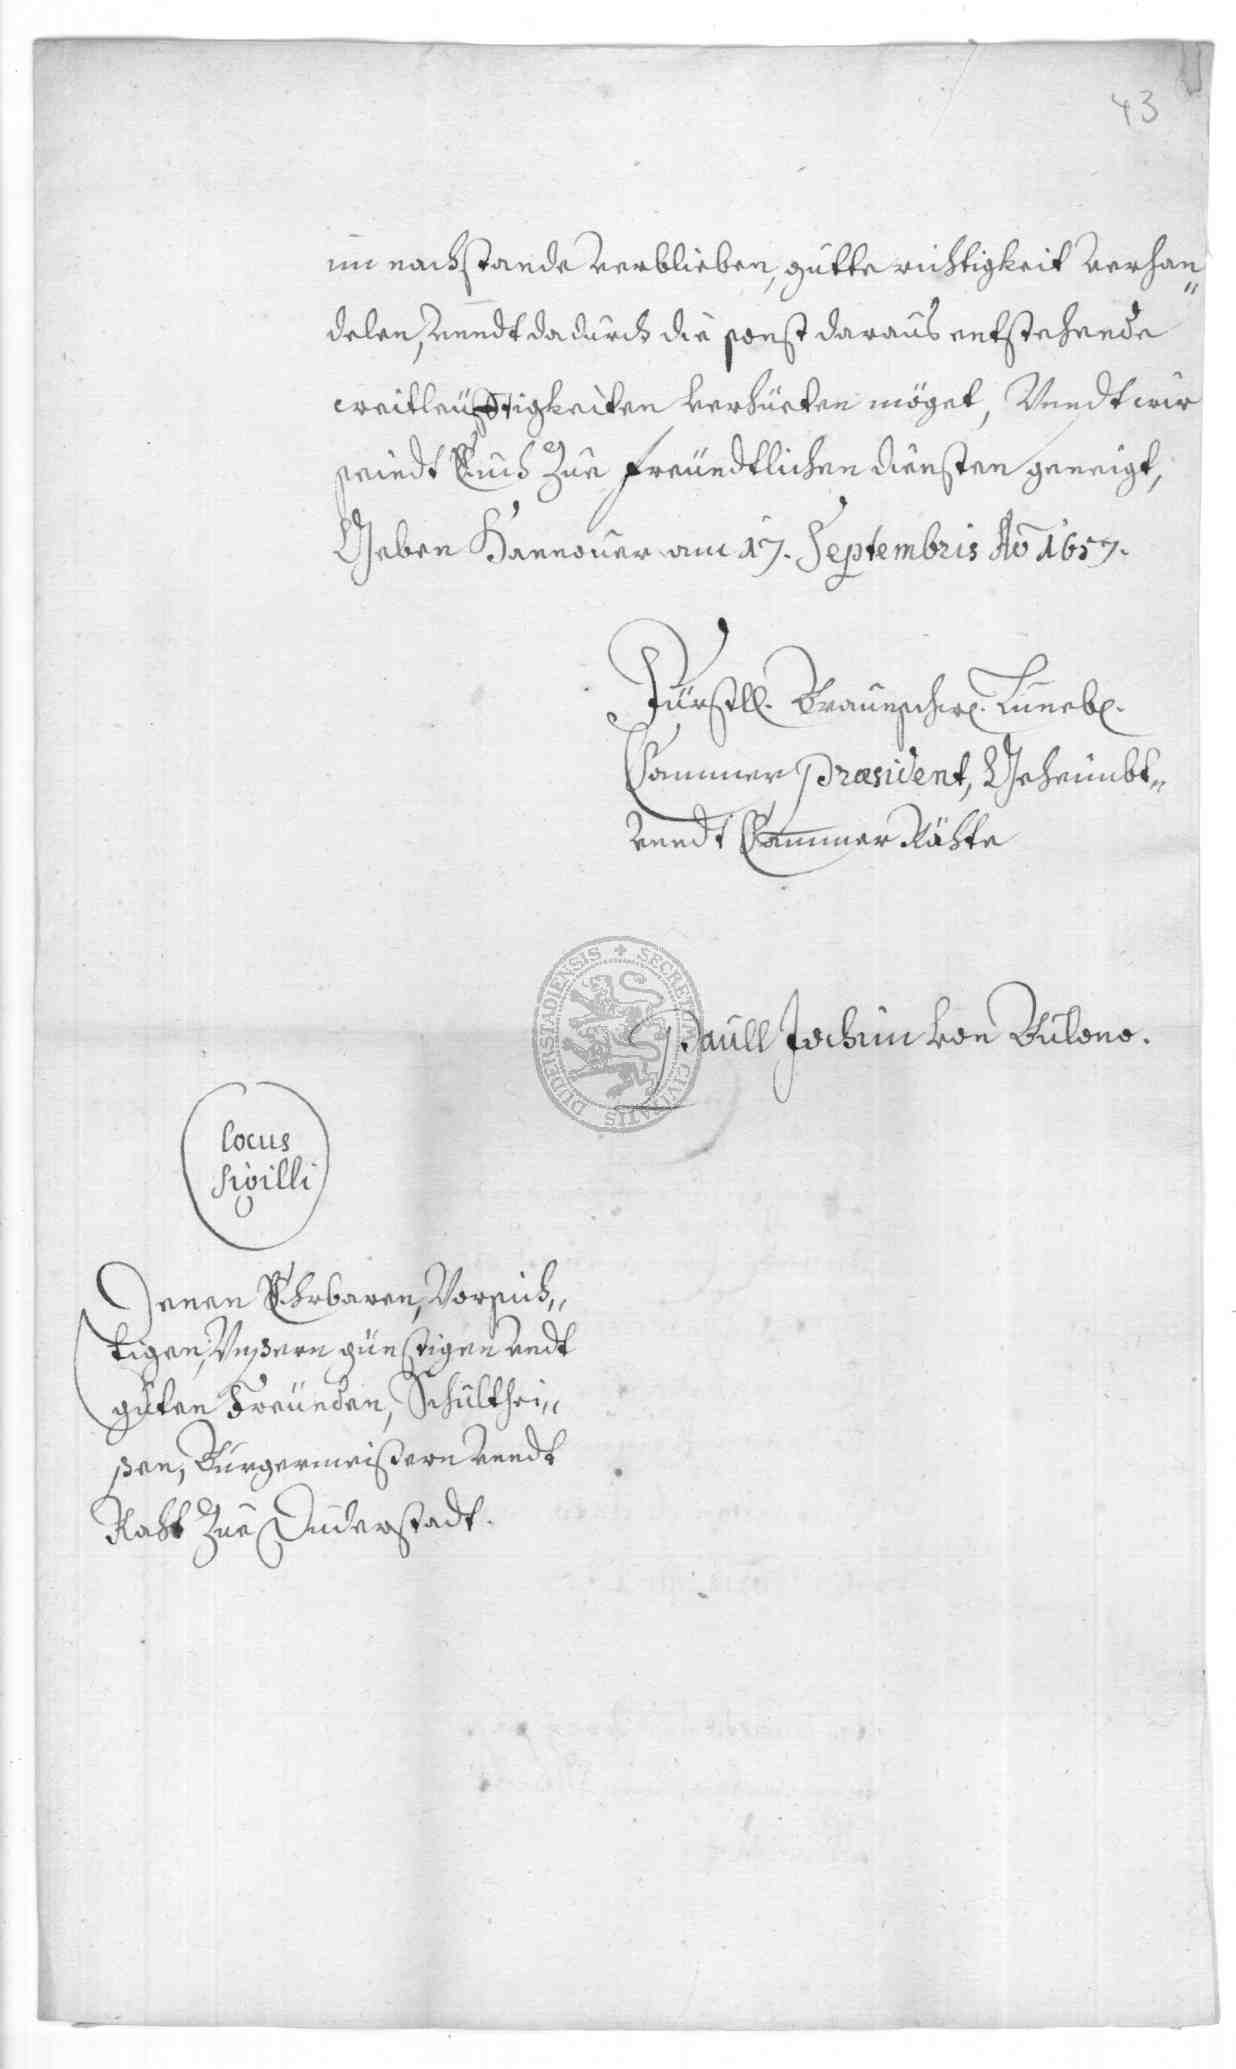 43
im nachstande verblieben, gutte richtigkeit verhan„
delen, vnndt dadurch die sonst daraus entstehende
weitleüfftigkeiten verhüeten möget, Vnndt wir
seindt Euch Zue freündtlichen diensten geneigt,
Geben Hannouer am 17. Septembris Ao 1657.
Fürstll. Braunschw. Luneb.
Cammer Præsident, Geheimbt„
vnndt Cammer Rähte
Paull Jochim von Bulono.
SECRETUM CIVITATIS DUDERSTADIENSIS
locus
sigilli
Denen Ehrbaren, Vorsich„
tigen, Vnßern günstigen vndt
guten Freünden, Schulthei„
ßen, Burgermeistern vnndt
Raht Zue Duderstadt.